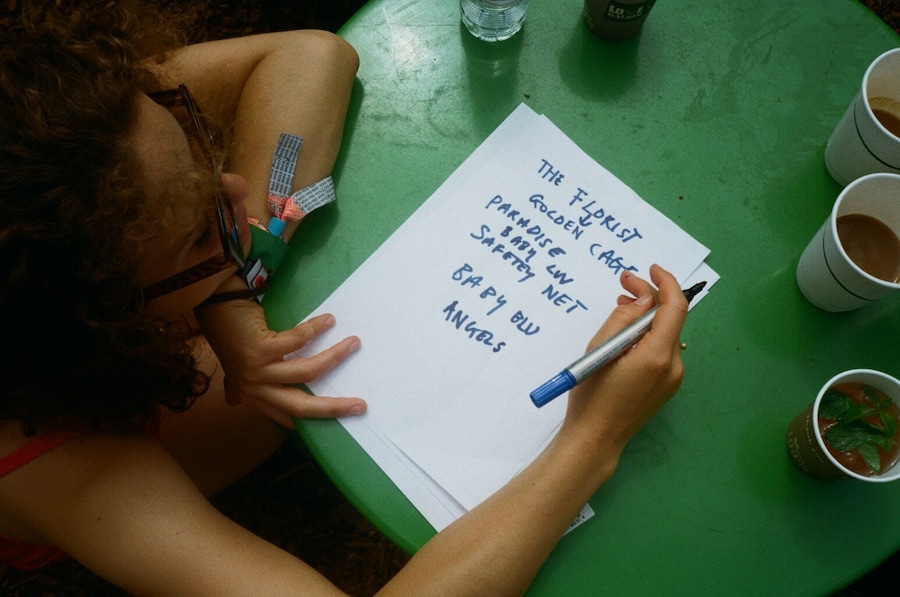 THE FLORIST
↓
GOLDEN CAGE
PARADISE
BABY LUV
SAFETEY NET
BABY BLU
ANGELS